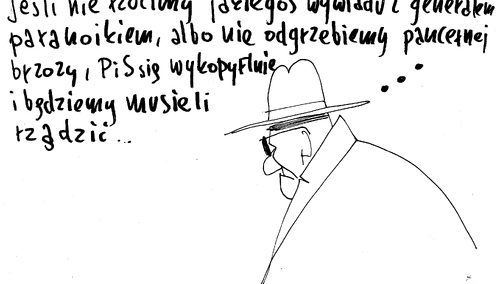 jeśli nie rzucimy jakiegoś wywiadu z generałem
paranoikiem, albo nie odgrzebiemy pancernej
brzozy, PiS się wykopyrtnie
i będziemy musieli
rządzić...